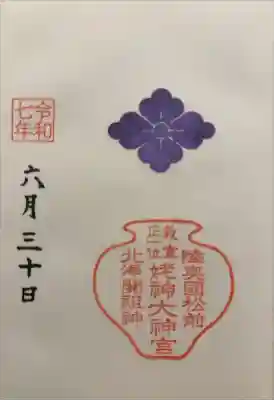 令和
七年
六月三十日
陸奥國松前
敕宣
正一位
姥神大神宮
北海開祖神